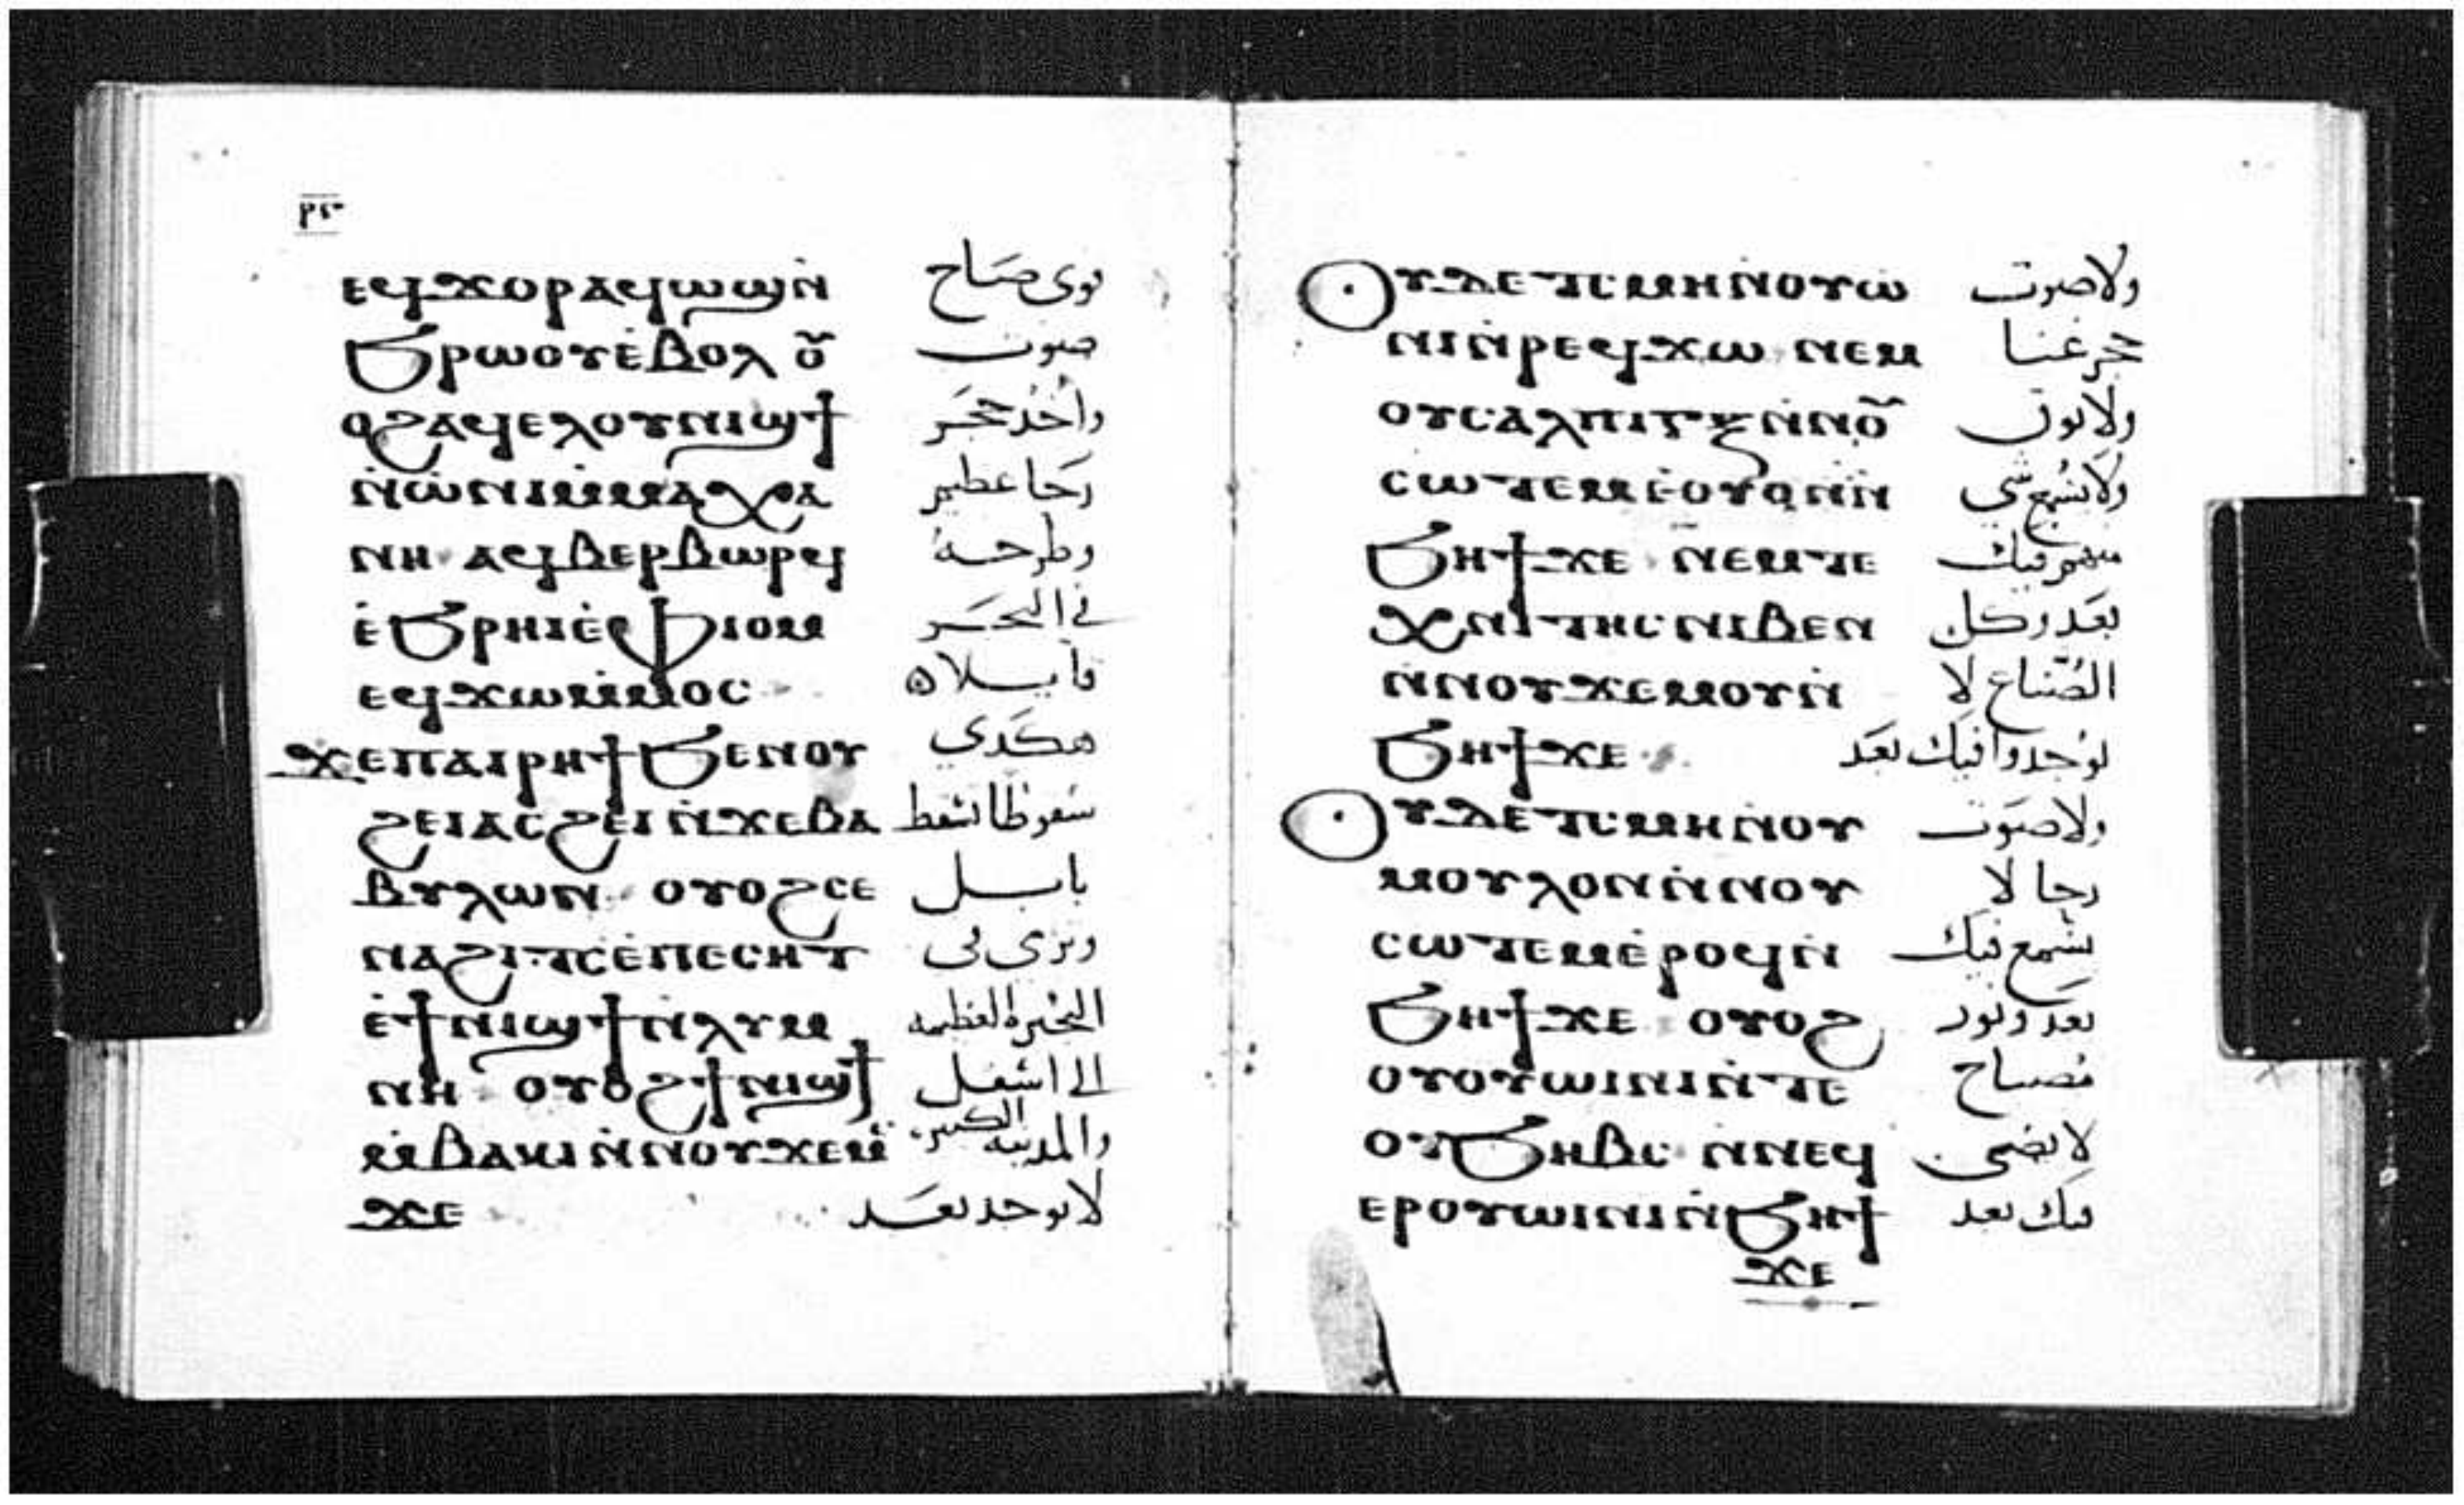 ⲉϥϫⲟⲣ ⲁϥⲱϣ ⲛ̇ نوى صَاح
ϧⲣⲱⲟⲩ ⲉ̇ⲃⲟⲗ ⲟⲩ̅ صوت
ⲟϩ ⲁϥⲉⲗ ⲟⲩⲛⲓϣϯ واخد حجر
ⲛ̇ⲱ̇ⲛⲓ ⲙ̇ⲙⲁⲭⲁ رحا عظيم
ⲛⲏ ⲁϥⲃⲉⲣⲃⲱⲣϥ وطرحه
ⲉ̇ϧⲣⲏⲓ ⲉ̇ⲫⲓⲟⲙ في البحر
ⲉϥϫⲱⲙ̇ⲙⲟⲥ قايلا ه
ϫⲉⲡⲁⲓⲣⲏϯ ϧⲉⲛⲟⲩ هكدي
ϩⲉⲓ ⲁⲥϩⲉⲓ ⲛ̇ϫⲉⲃⲁ سقوطا تسقط
ⲃⲩⲗⲱⲛ ⲟⲩⲟϩ ⲥⲉ بابل
ⲛⲁϩⲓⲧⲥ ⲉ̇ⲡⲉⲥⲏⲧ وترمى فى
ⲉ̇ϯⲛⲓϣϯ ⲛ̇ⲗⲩⲙ البحيرة العظيمه
ⲛⲏ ⲟⲩⲟϩ ϯⲛⲓϣϯ الى اسفل
ⲙ̇ⲃⲁⲕⲓ ⲛ̇ⲛⲟⲩϫⲉⲙ̈ والمدينه الكبيره
ϫⲉ لا توجد بعد
ⲟⲩⲇⲉ ⲧ̇ⲥⲙⲏ ⲛ̇ⲟⲩⲱ ولا صوت
ⲛⲓⲛ̇ⲣⲉϥϫⲱ ⲛⲉⲙ غنا
ⲟⲩⲥⲁⲗⲡⲓⲅⲝ ⲛ̇ⲛⲟⲩ̅ ولا بوق
ⲥⲱⲧⲉⲙ ⲉ̇ⲟⲩⲟⲛ ⲛ̇ ولا يسمع شي
ϧⲏϯ ϫⲉ ⲛⲉⲙ ⲧⲉ منهم فيك
ⲭⲛⲓⲧⲏⲥ ⲛⲓⲃⲉⲛ بعد وكل
ⲛ̇ⲛⲟⲩϫⲉⲙⲟⲩ ⲛ̇ الصّناع لا
ϧⲏϯ ϫⲉ يوجدوا فيك بعد
ⲟⲩⲇⲉ ⲧ̇ⲥⲙⲏ ⲛⲟⲩ ولا صوت
ⲙⲟⲩⲗⲟⲛ ⲛ̇ⲛⲟⲩ رحا لا
ⲥⲱⲧⲉⲙ ⲉ̇ⲣⲟϥ ⲛ̇ يسمع فيك
ϧⲏϯ ϫⲉ ⲟⲩⲟϩ بعد ونور
ⲟⲩⲟⲩⲱⲓⲛⲓ ⲛ̇ⲧⲉ مصباح
ⲟⲩϧⲏⲃⲥ ⲛ̇ⲛⲉϥ لا يضى
ⲉⲣⲟⲩⲱⲓⲛⲓ ⲛ̇ϧⲏϯ فيك بعد
ϫⲉ